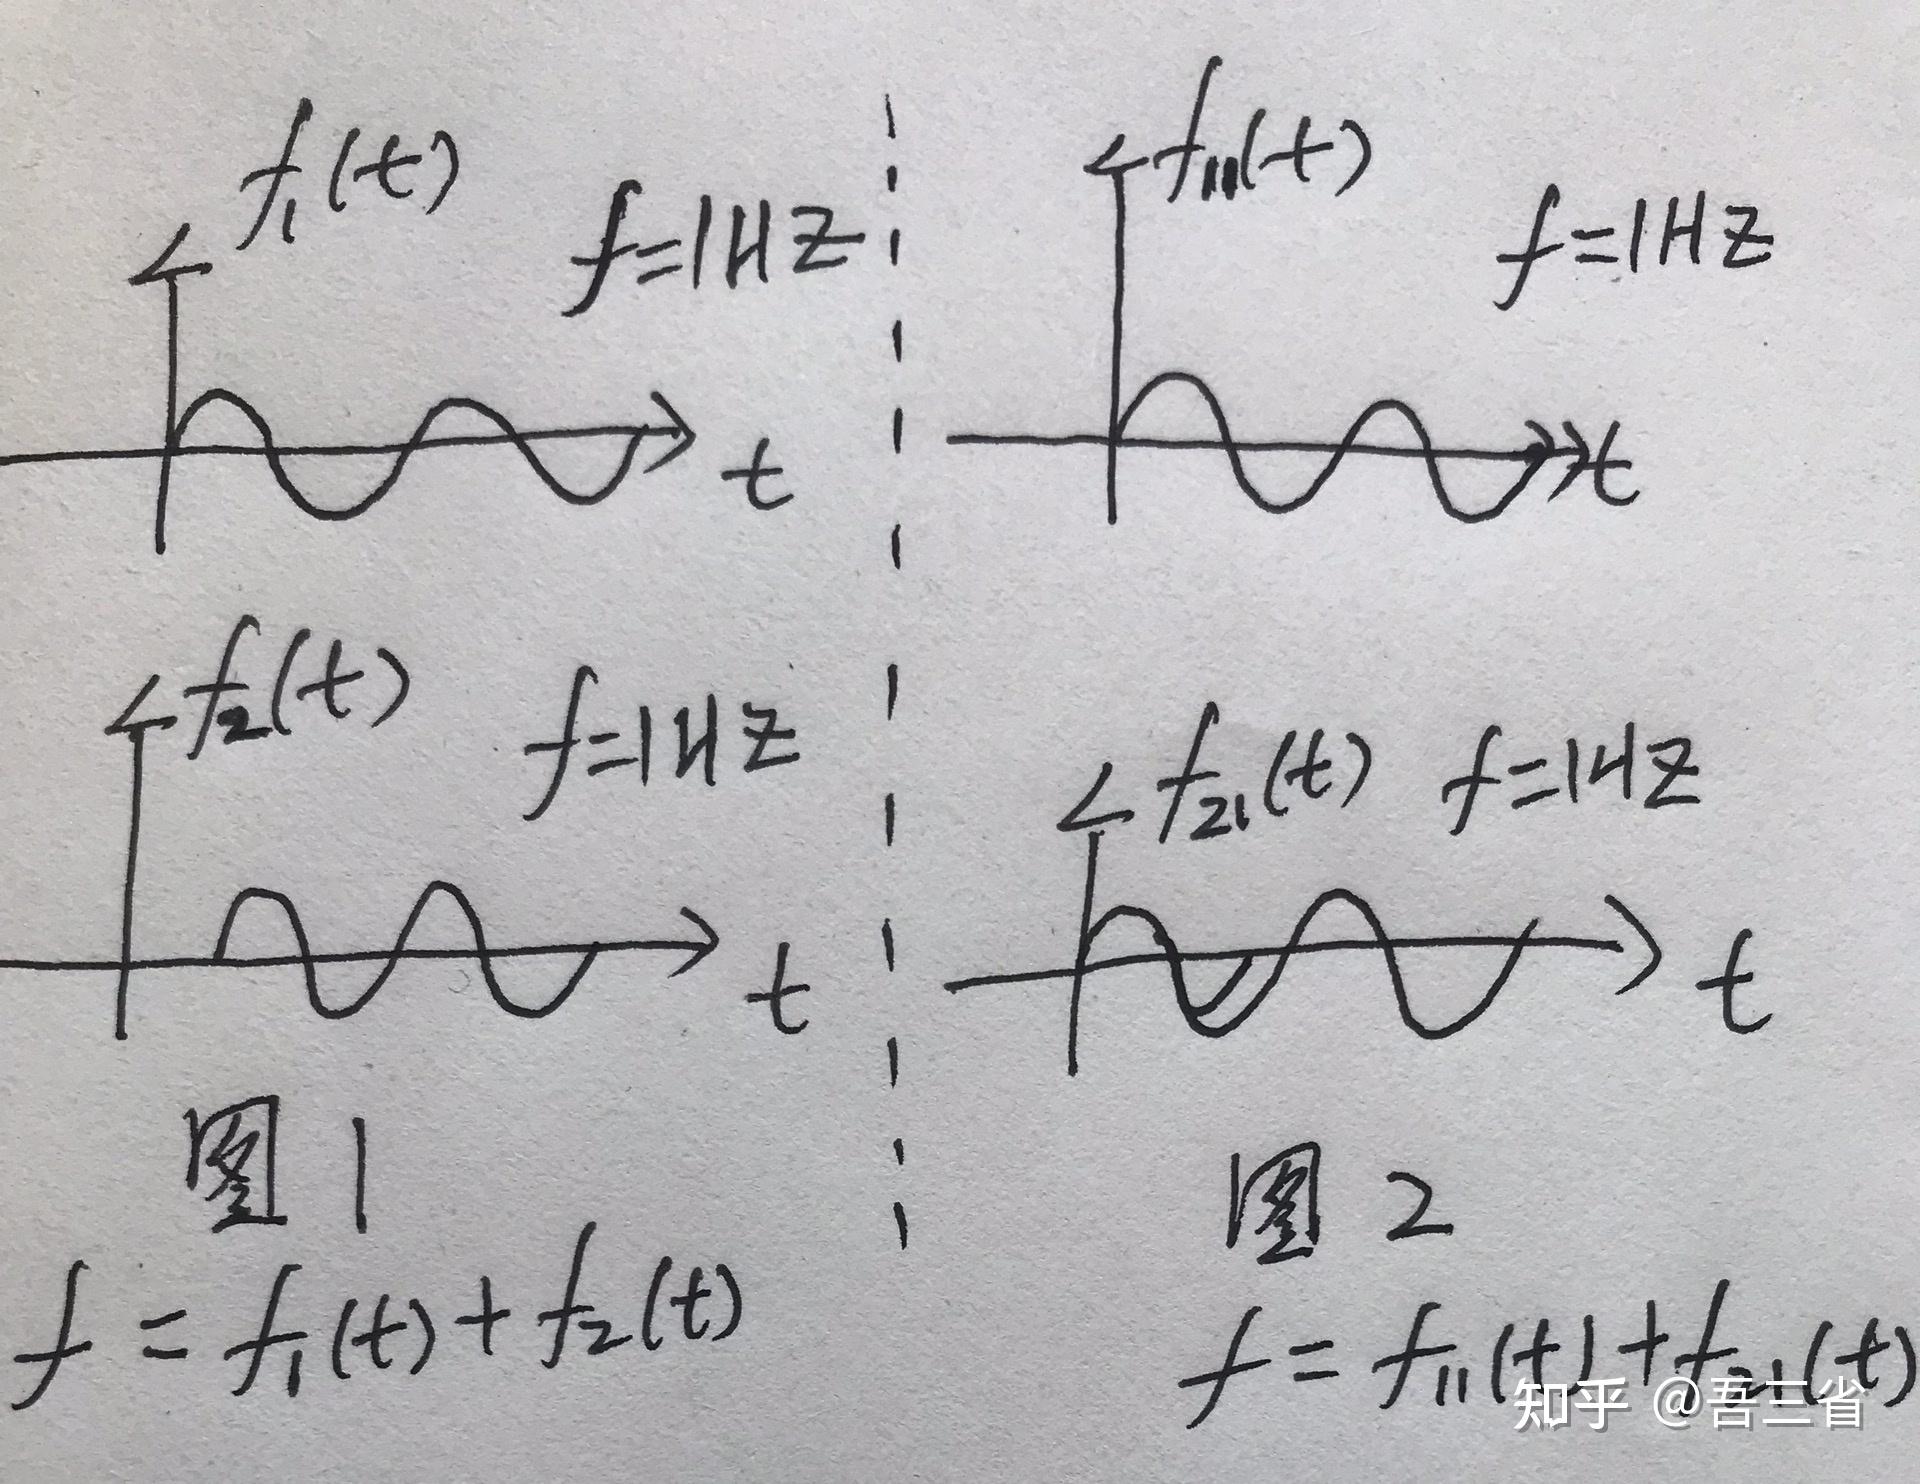 f₁(t)
f=1HZ
t
f₂(t)
f=1HZ
t
图1
f = f₁(t) + f₂(t)
f₁₁(t)
f=1HZ
t
f₂₁(t)
f=1HZ
t
图2
f = f₁₁(t) + f₂₁(t)
知乎 @吾三省